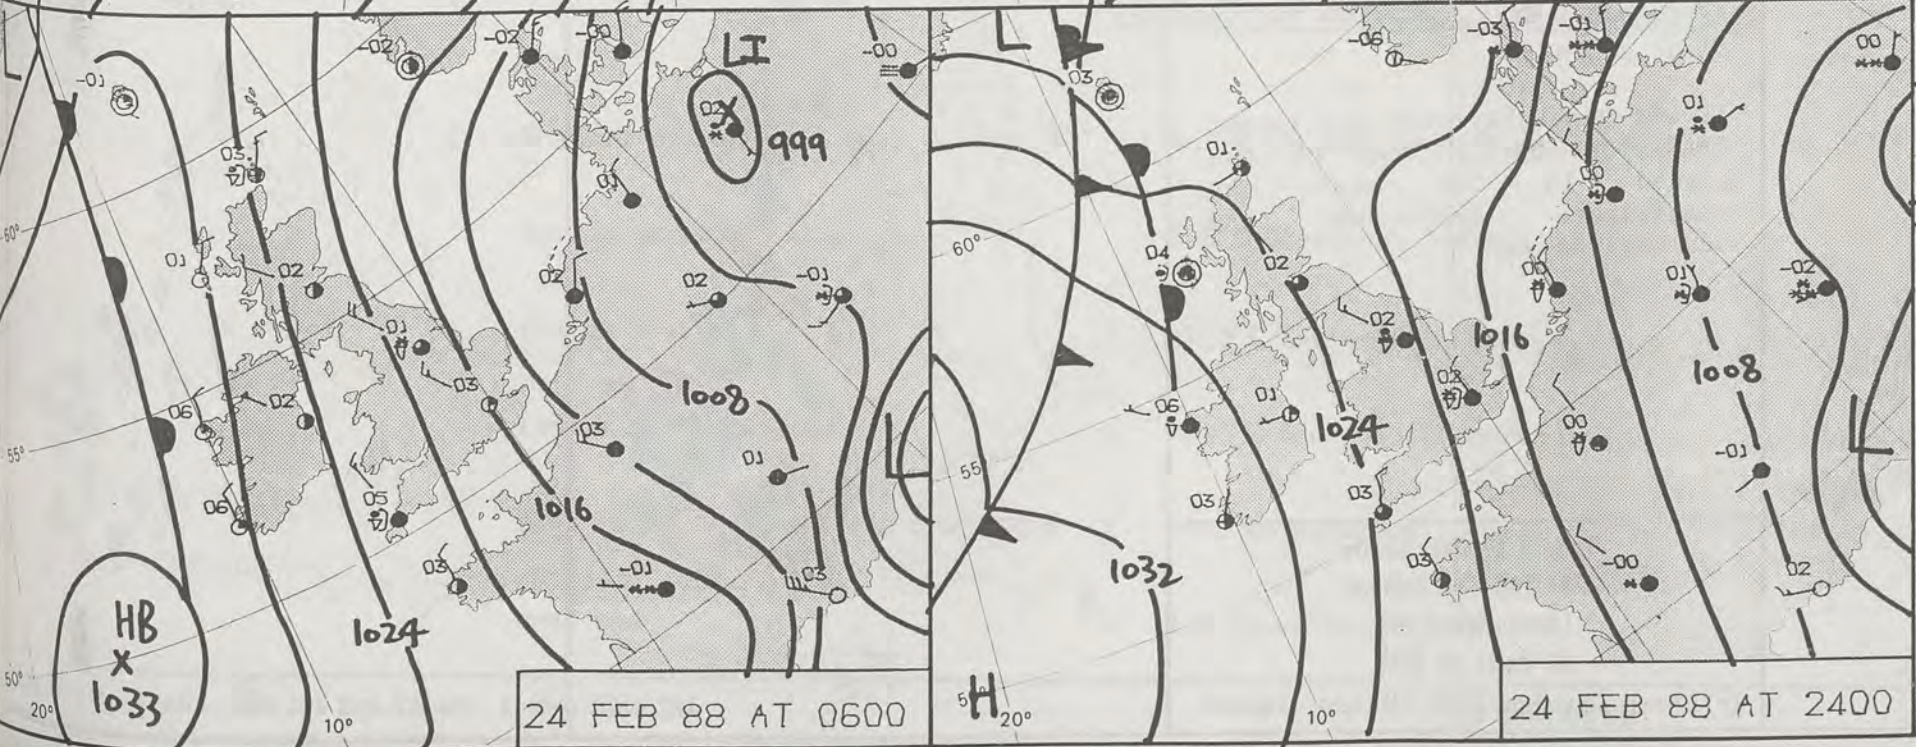 L
-01
-02
-02
-00
LI
02
X
999
-00
03
01
60°
01
02
02
02
-01
01
03
1008
06
02
55°
03
01
L
06
05
1016
03
-01
03
HB
X
1033
1024
50°
20°
10°
24 FEB 88 AT 0600
L
03
-06
-03
-01
00
01
01
00
60°
04
02
00
01
-02
02
1016
1008
02
06
01
1024
00
L
-01
55
03
03
1032
03
-00
02
H
20°
10°
24 FEB 88 AT 2400